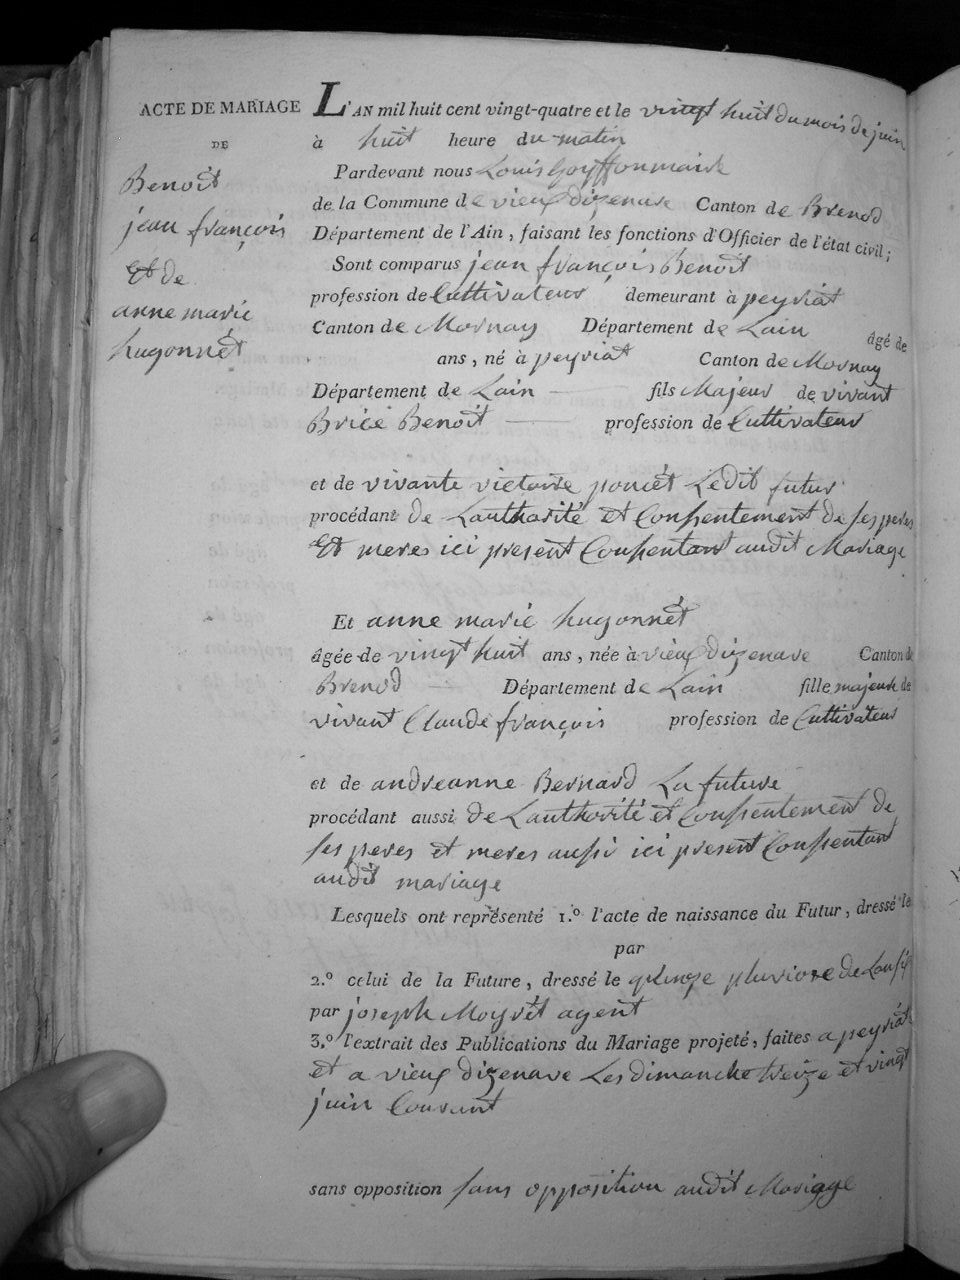 ACTE DE MARIAGE
DE
Benoît
jean françois
Et de
anne marie
hugonnét
L'AN mil huit cent vingt-quatre et le vingt huit du mois de juin
à huit heure du matin
Pardevant nous Louis Goyffon maire
de la Commune de vieux dizenave Canton de Brenod
Département de l'Ain, faisant les fonctions d'Officier de l'état civil;
Sont comparus jean françois Benoit
profession de Cultivateur demeurant à peyriat
Canton de Mornay Département de Lain âgé de
ans, né à peyriat Canton de Mornay
Département de Lain fils Majeur de vivant
Brice Benoît profession de Cultivateur
et de vivante victoire poncét Ledit futur
procédant de Lauthorité et Consentement de ses peres
Et meres ici present Consentant audit Mariage
Et anne marie hugonnét
âgée de vingt huit ans, née à vieux dizenave Canton de
Brenod Département de Lain fille majeure de
vivant Claude françois profession de Cultivateur
et de andreanne Bernard La future
procédant aussi de Lauthorité et Consentement de
ses peres et meres aussi ici present Consentant
audit mariage
Lesquels ont représenté 1.º l'acte de naissance du Futur, dressé le
par
2.º celui de la Future, dressé le quinze pluviose de Lan
par joseph Moyrét agent
3.º l'extrait des Publications du Mariage projeté, faites a peyriat
et a vieux dizenave Les dimanche treize et vingt
juin Courant
sans opposition sans opposition audit Mariage